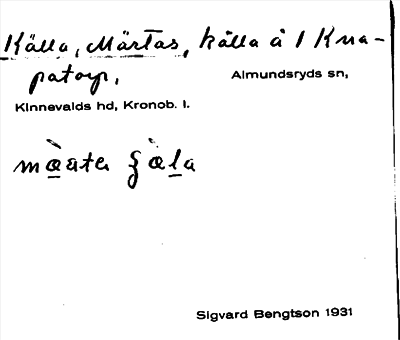 Källa, Märtas, källa å 1 Kna-
patorp.
Almundsryds sn,
Kinnevalds hd, Kronob. l.
Sigvard Bengtson 1931